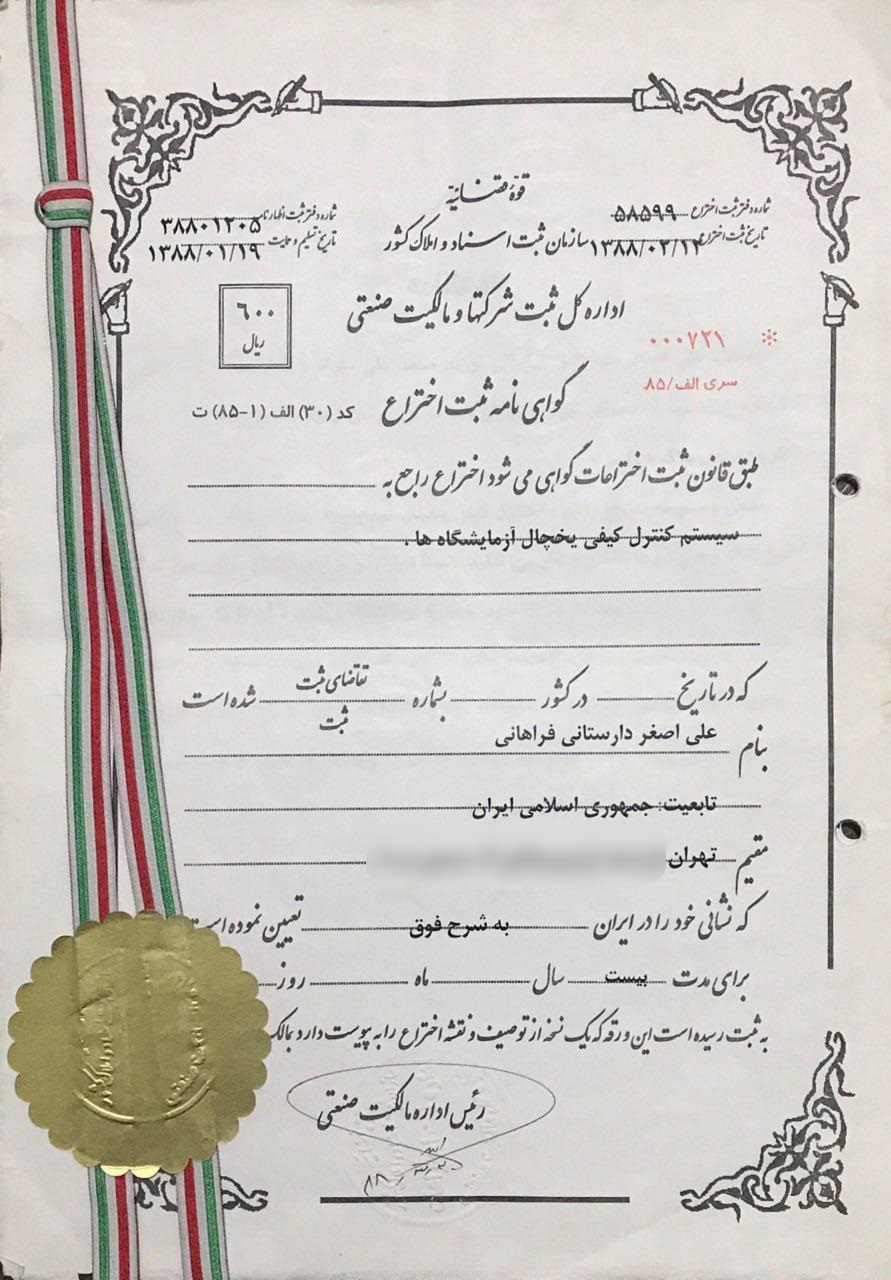 قوهٔ قضائیه
شماره دفتر ثبت اختراع ۵۸۵۹۹
شماره دفتر ثبت اظهارنامه ۳۸۸۰۱۲۰۵
سازمان ثبت اسناد و املاک کشور
تاریخ ثبت اختراع ۱۳۸۸/۰۲/۱۲
تاریخ تسلیم و حمایت ۱۳۸۸/۰۱/۱۹
اداره کل ثبت شرکتها و مالکیت صنعتی
۶۰۰
ریال
۰۰۰۷۲۱
سری الف/۸۵
گواهی نامه ثبت اختراع
کد (۳۰) الف (۱-۸۵) ت
طبق قانون ثبت اختراعات گواهی می شود اختراع راجع به
سیستم کنترل کیفی یخچال آزمایشگاه ها .
که در تاریخ در کشور بشماره تقاضای ثبت شده است
ثبت
بنام علی اصغر دارستانی فراهانی
تابعیت: جمهوری اسلامی ایران
مقیم تهران
که نشانی خود را در ایران به شرح فوق تعیین نموده است
برای مدت بیست سال ماه روز
به ثبت رسیده است این ورقه که یک نسخه از توصیف و نقشه اختراع را به پیوست دارد بمالک
رئیس اداره مالکیت صنعتی